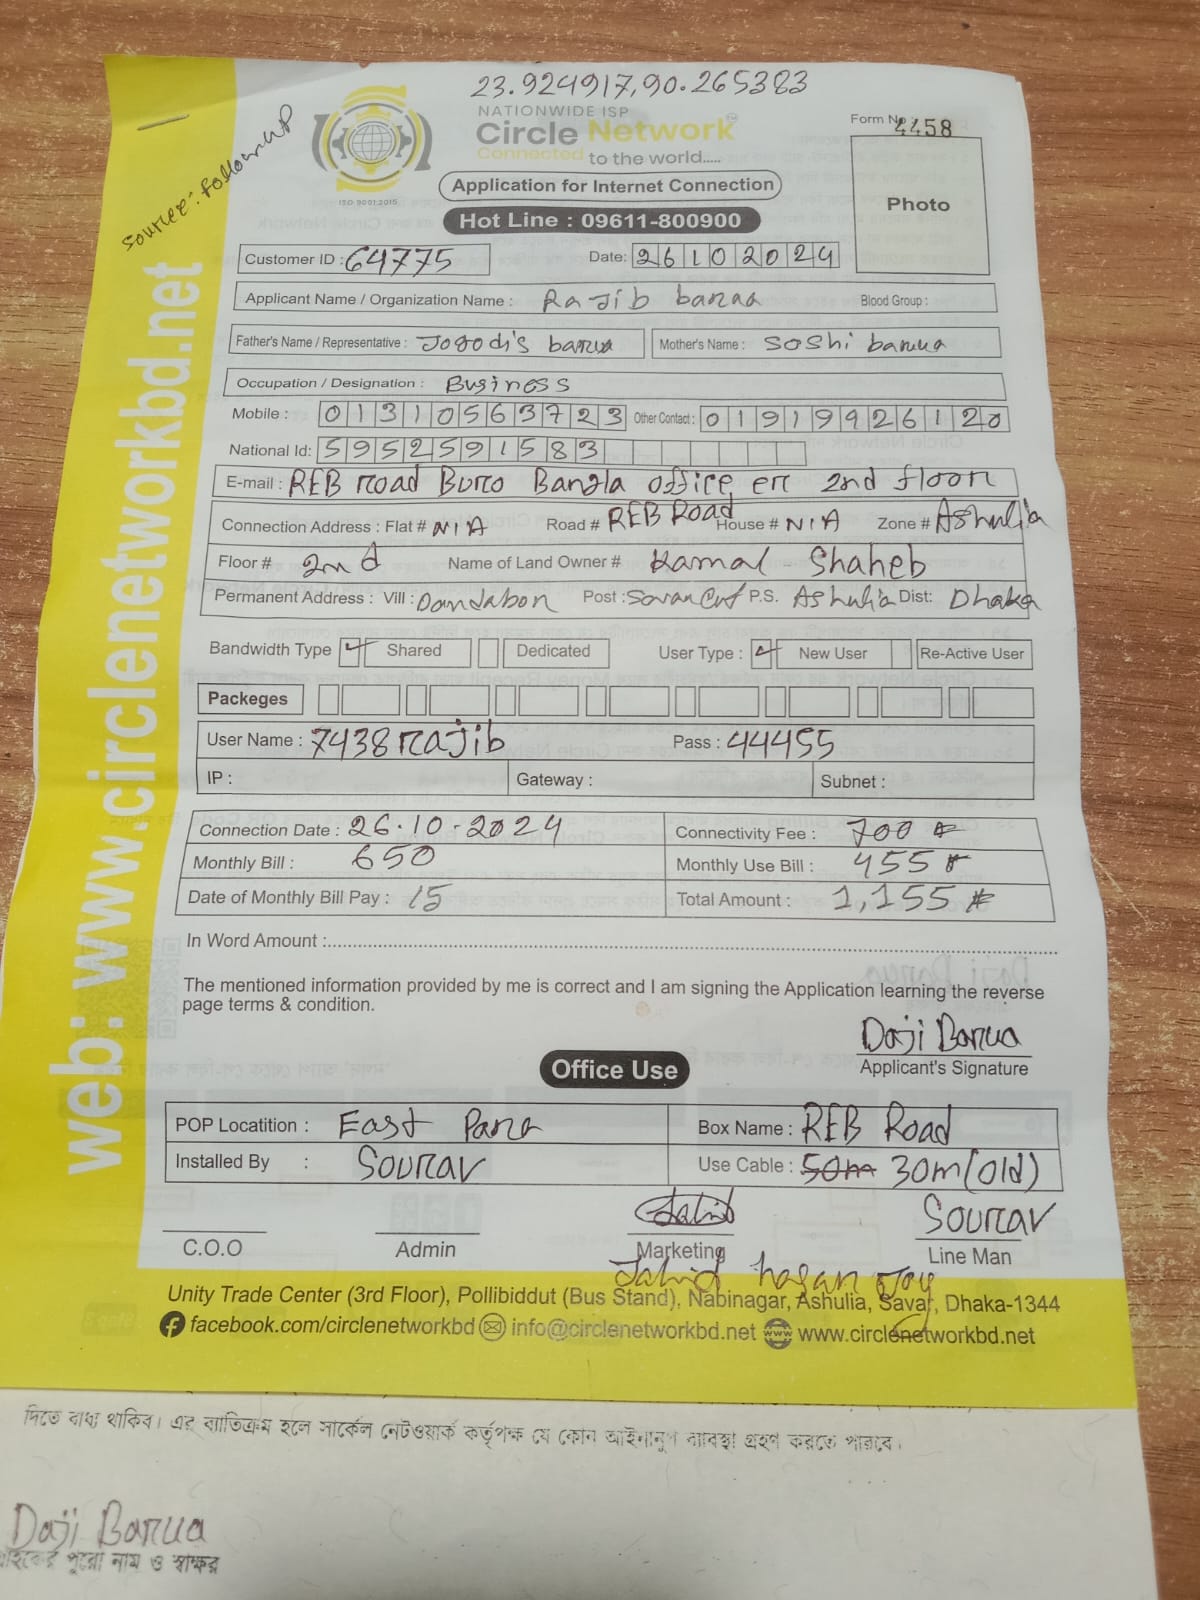 23.924917,90.265383
NATIONWIDE ISP
Circle Network
Connected to the world.....
ISO 9001:2015
Source: Followup
Form No 4458
Photo
Application for Internet Connection
Hot Line : 09611-800900
Customer ID : 64775 Date: 26102024
Applicant Name / Organization Name : Rajib barua Blood Group :
Father's Name / Representative : Jogodis barua Mother's Name : Soshi barua
Occupation / Designation : Business
Mobile : 01310563723 Other Contact : 01919926120
National Id: 5952591583
E-mail : REB road Buro Bangla office er 2nd floor
Connection Address : Flat # N/A Road # REB Road House # N/A Zone # Ashulia
Floor # 2nd Name of Land Owner # Kamal Shaheb
Permanent Address : Vill : Dandabon Post : Savar Cnt P.S. Ashulia Dist: Dhaka
Bandwidth Type Shared Dedicated User Type : New User Re-Active User
Packeges
User Name : 7438rajib Pass : 44455
IP : Gateway : Subnet :
Connection Date : 26.10-2024 Connectivity Fee : 700
Monthly Bill : 650 Monthly Use Bill : 455
Date of Monthly Bill Pay : 15 Total Amount : 1,155
In Word Amount :
The mentioned information provided by me is correct and I am signing the Application learning the reverse
page terms & condition.
Daji Barua
Applicant's Signature
Office Use
POP Locatition : East Para Box Name : REB Road
Installed By : Sourav Use Cable : 50m 30m(old)
Jahid Sourav
C.O.O Admin Marketing Line Man
Jahid hasan Joy
Unity Trade Center (3rd Floor), Pollibiddut (Bus Stand), Nabinagar, Ashulia, Savar, Dhaka-1344
facebook.com/circlenetworkbd info@circlenetworkbd.net www.circlenetworkbd.net
web: www.circlenetworkbd.net
দিতে বাধ্য থাকিব। এর ব্যতিক্রম হলে সার্কেল নেটওয়ার্ক কর্তৃপক্ষ যে কোন আইনানুগ ব্যবস্থা গ্রহণ করতে পারবে।
Daji Barua
গ্রাহকের পুরো নাম ও স্বাক্ষর